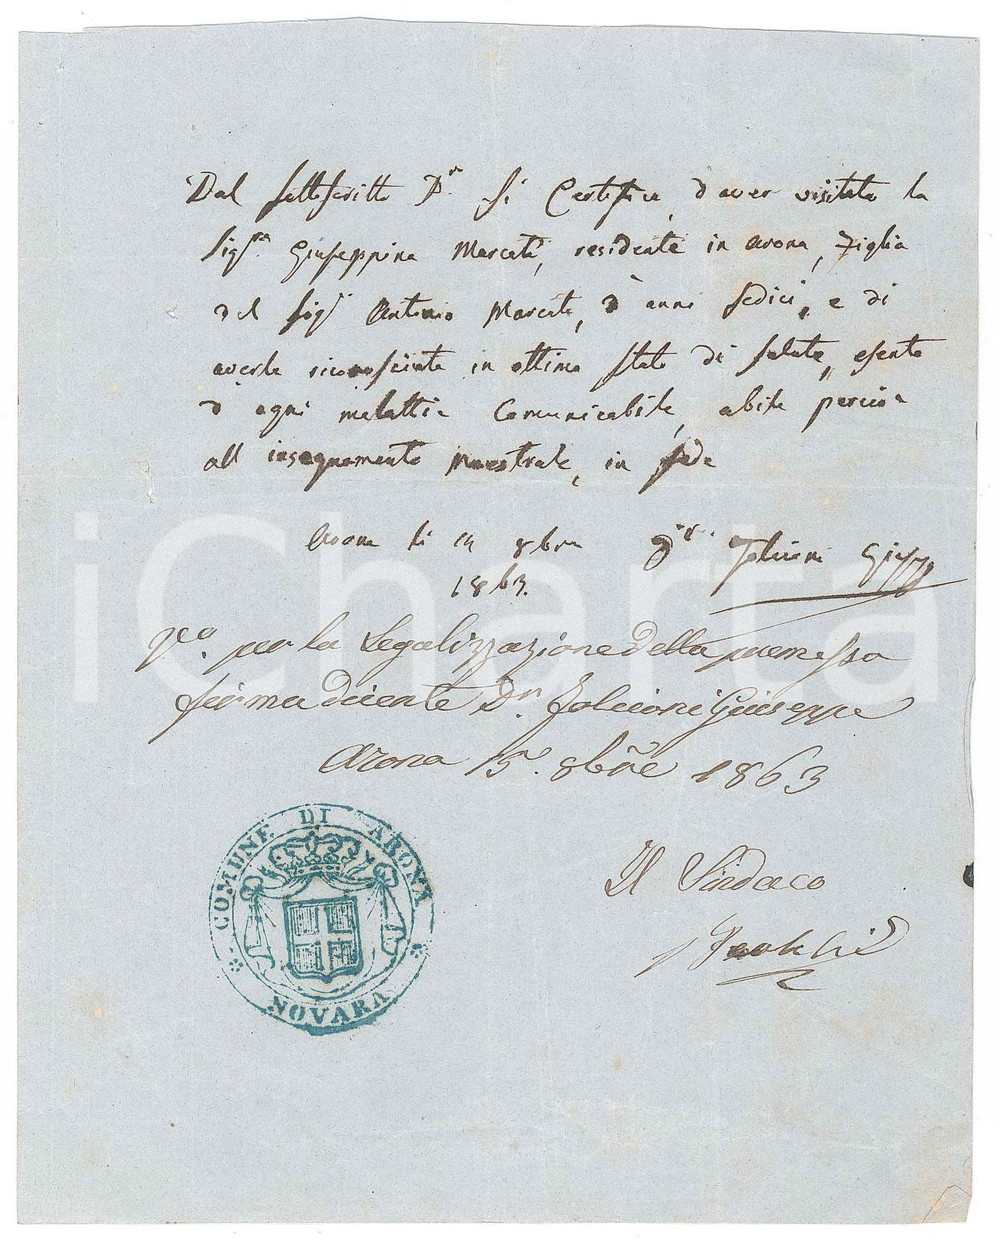 Dal sottoscritto Dr. si Certifica, d'aver visitata la
Sigra. Giuseppina Marcati, residente in Arona, Figlia
del Sigr. Antonio Marcati, d'anni sedici, e di
averla riconosciuta in ottimo stato di salute, esente
d'ogni malattia Comunicabile, abile perciò
all'insegnamento Maestrale, in fede
Arona li 14 8bre Dr. Falcioni Giuseppe
1863.
Vo. per la Legalizzazione della premessa
firma dicente Dr. Falcioni Giuseppe
Arona 15. 8bre 1863
COMUNE DI ARONA
NOVARA
Il Sindaco
iCharta